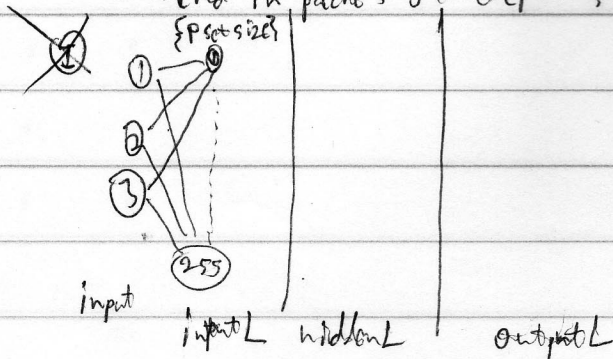 {Psetsize}
1
2
3
255
input
inputL hiddenL outputL